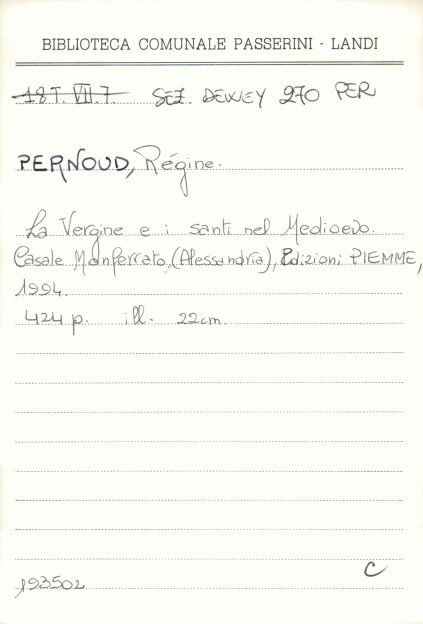 BIBLIOTECA COMUNALE PASSERINI - LANDI
18T. VII.7 SEZ. DEWEY 270 PER
PERNOUD, Régine.
La Vergine e i santi nel Medioevo.
Casale Monferrato, (Alessandria), Edizioni PIEMME,
1994.
424 p. ill. 22cm.
193502
C